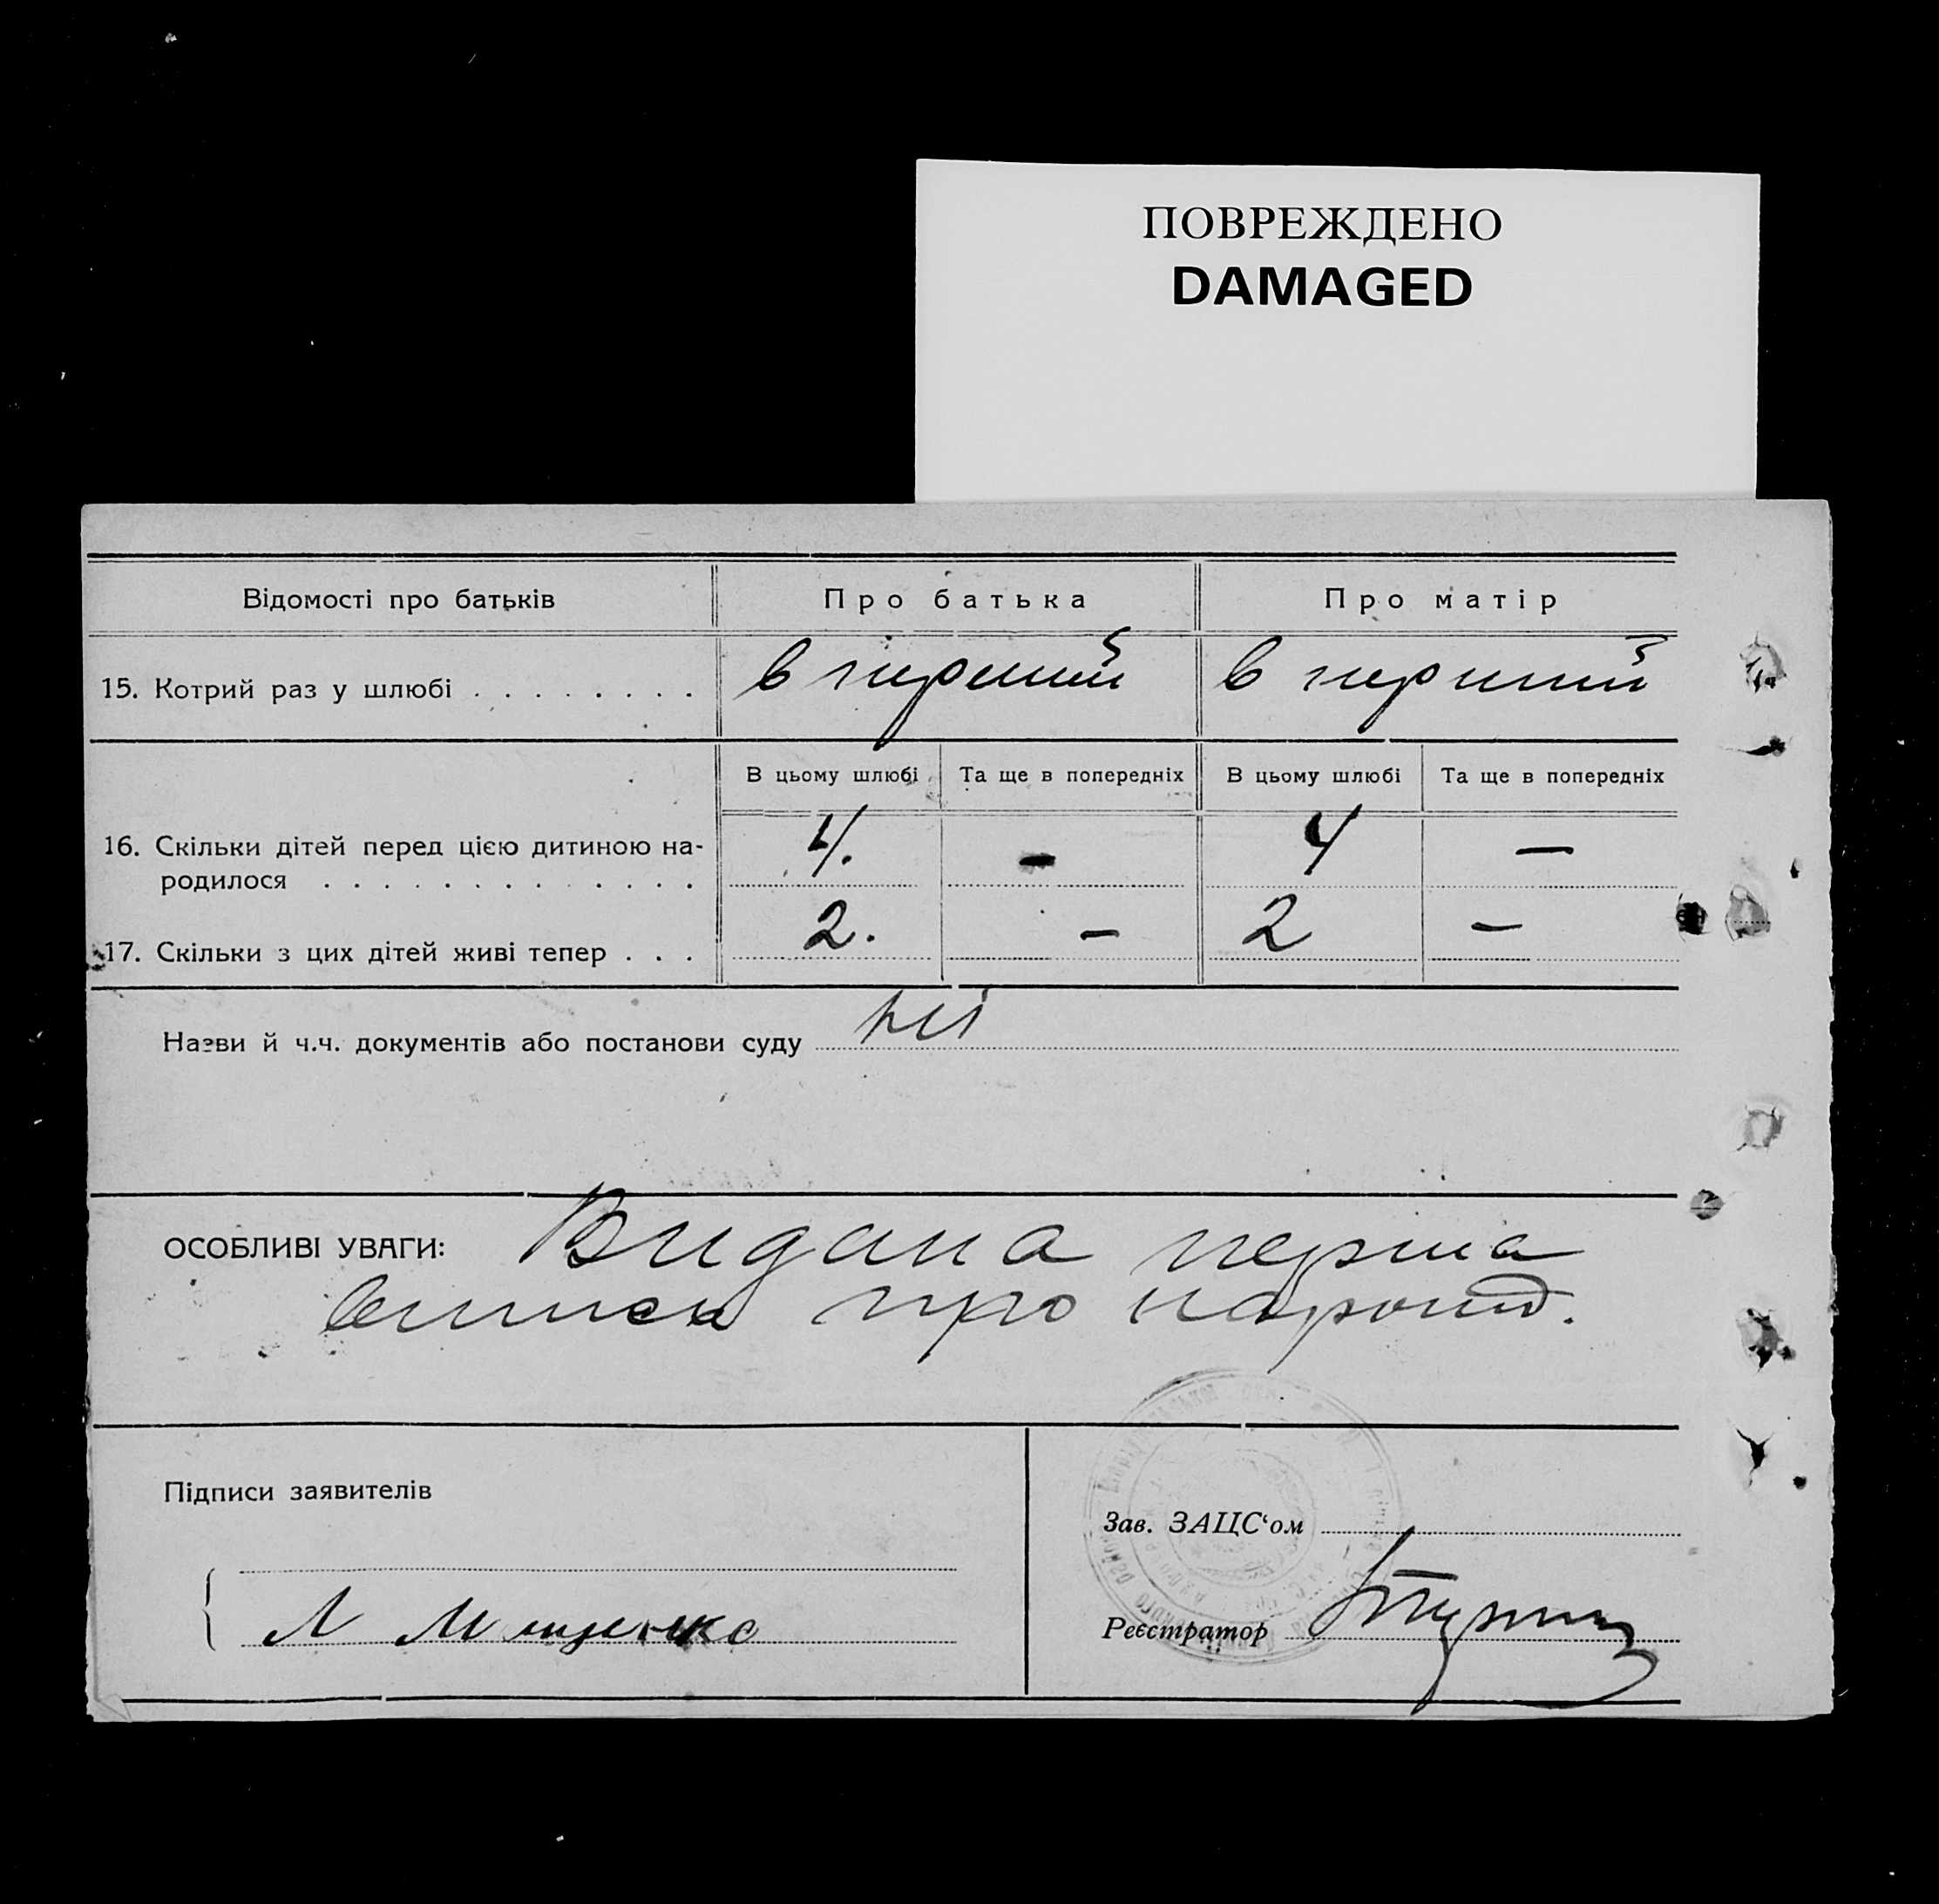 ПОВРЕЖДЕНО
DAMAGED
Відомості про батьків Про батька Про матір
15. Котрий раз у шлюбі . . . . . . . . в перший в перший
В цьому шлюбі Та ще в попередніх В цьому шлюбі Та ще в попередніх
16. Скільки дітей перед цією дитиною на-
родилося . . . . . . . . . . . . . 4. – 4 –
17. Скільки з цих дітей живі тепер . . . 2. – 2 –
Назви й ч.ч. документів або постанови суду ні
ОСОБЛИВІ УВАГИ: Видана перша
випись про народ.
Підписи заявителів
Зав. ЗАЦС‘ом
Л Мищенко
Реєстратор